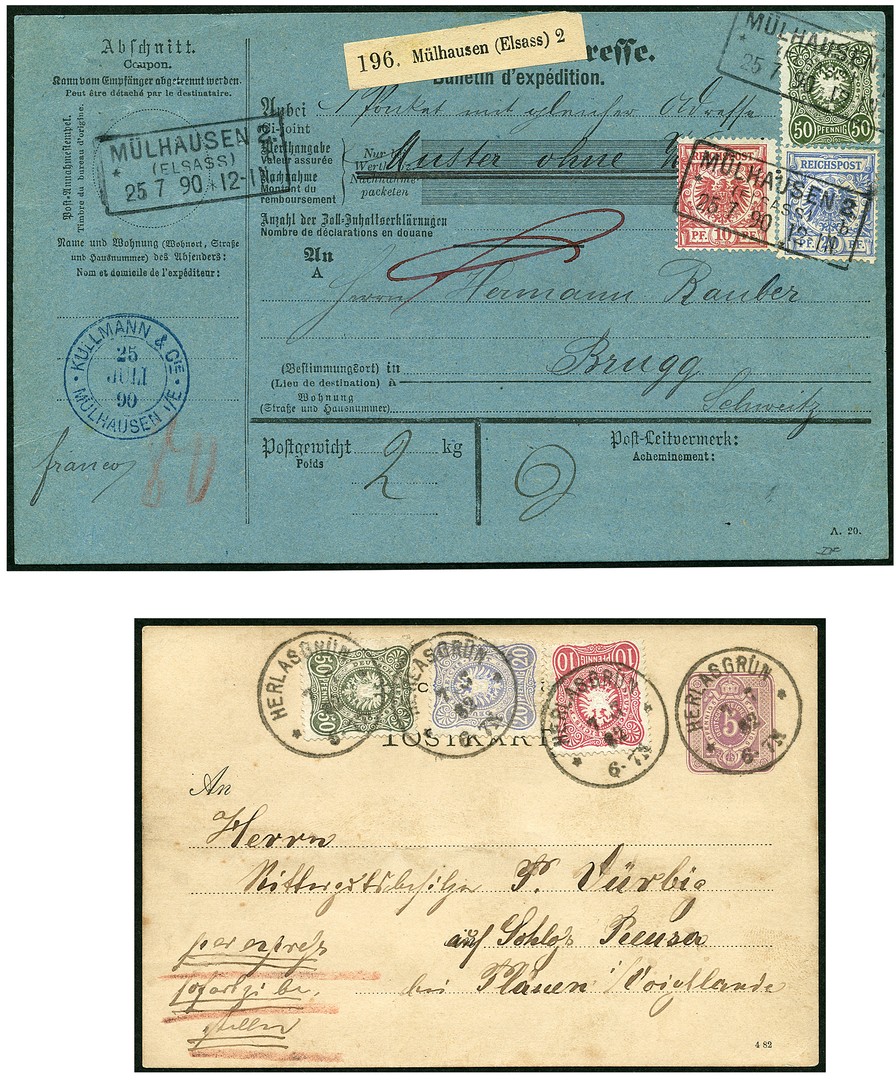 Abschnitt.
Coupon.
Kann vom Empfänger abgetrennt werden.
Peut être détaché par le destinataire.
Post-Annahmestempel.
Timbre du bureau d'origine.
MÜLHAUSEN 2.
(ELSASS)
* 25 7 90 * 12-1N
Name und Wohnung (Wohnort, Straße
und Hausnummer) des Absenders:
Nom et domicile de l'expéditeur:
KULLMANN & CIE
25
JULI
90
MÜLHAUSEN I/E
franco
60
196. Mülhausen (Elsass) 2
resse.
Bulletin d'expédition.
Anbei
Ci-joint
1 Packet mit gleicher Adresse
Werthangabe
Valeur assurée
Nachnahme
Montant du
remboursement
Nur
Werth
Nachnahme-
packeten
Muster ohne
Anzahl der Zoll-Inhaltserklärungen
Nombre de déclarations en douane
An
A
Herrn Hermann Rauber
(Bestimmungsort) in
(Lieu de destination) A
Brugg
Wohnung
(Straße und Hausnummer)
Schweitz
Postgewicht
Poids
2 kg
Post-Leitvermerk:
Acheminement:
A. 20.
MÜLHAUSEN
* 25 7 90
50 PFENNIG 50
REICHSPOST
PF. 10 PF.
REICHSPOST
MÜLHAUSEN 2
25 7 90 * 12-1N
HERLASGRÜN
50 PFENNIG 50
HERLASGRÜN
20 PFENNIG 20
HERLASGRÜN
6-7N
10 PFENNIG 10
HERLASGRÜN
6-7N
5
POSTKARTE
An
Herrn
Rittergutsbesitzer P. Türbig
auf Schloß Reusa
bei Plauen i/Voigtlande
per express
sofort zu be-
stellen
4 82